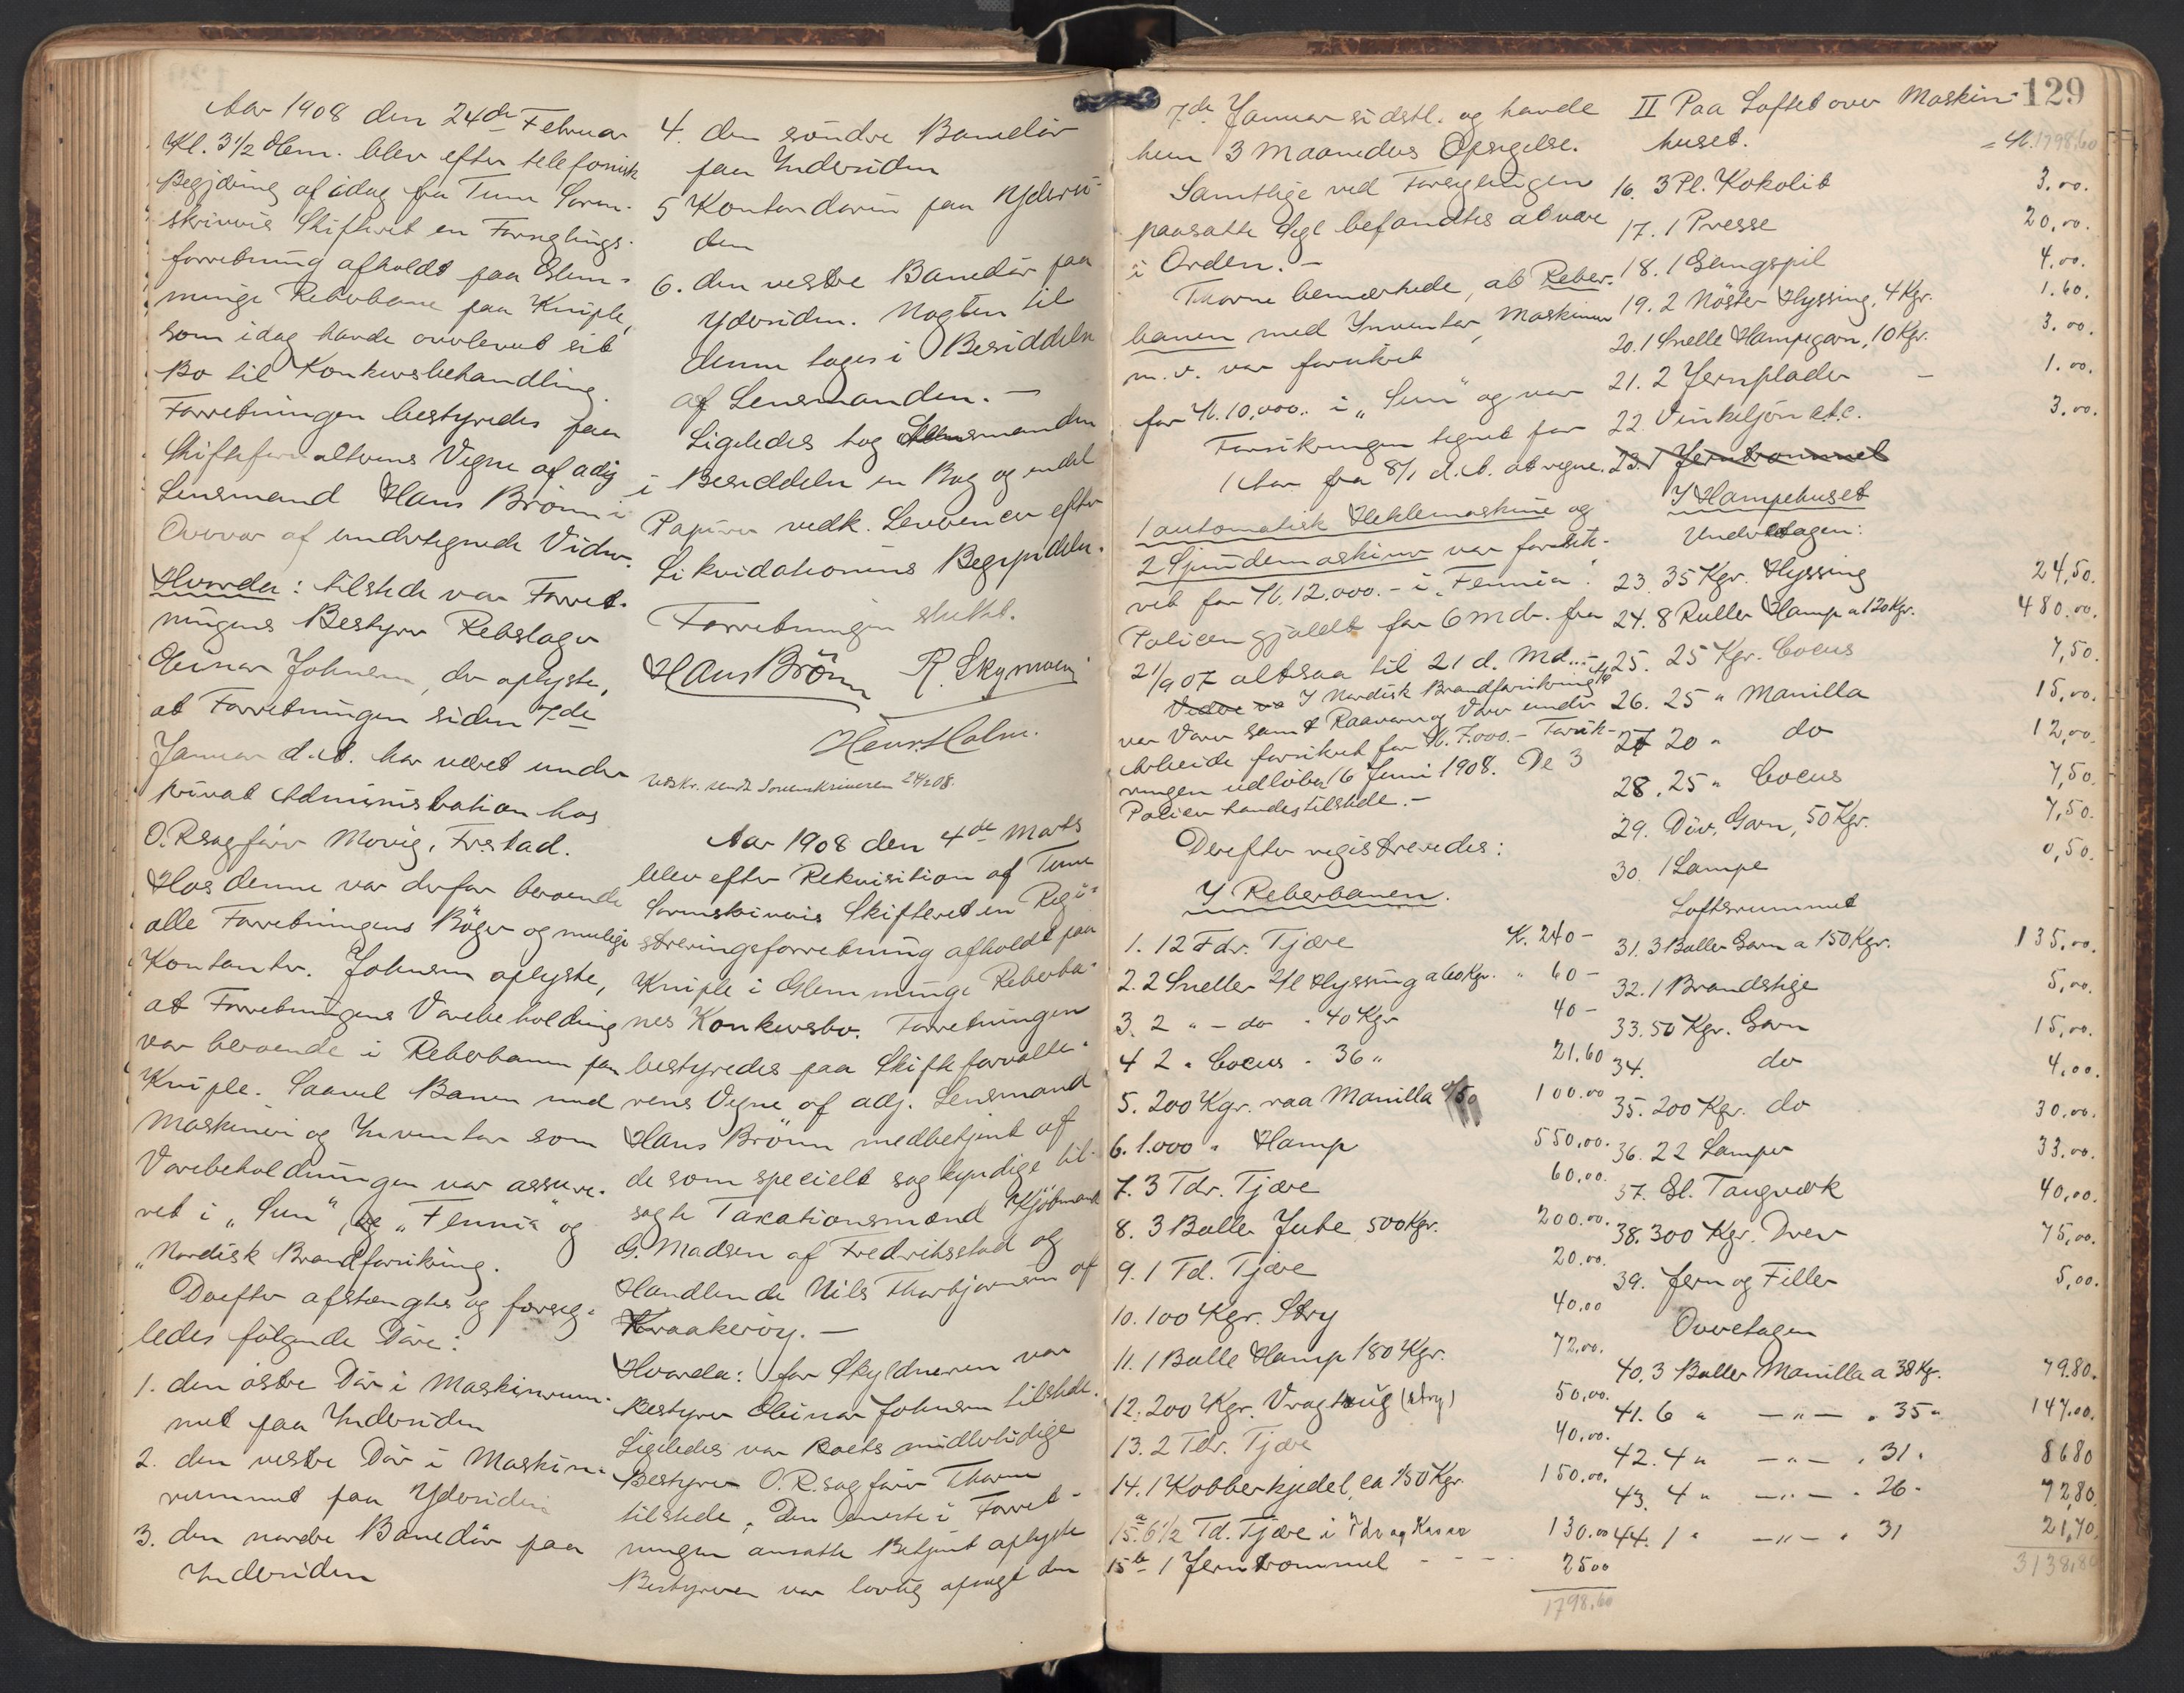 Aar 1908 den 24de Februar
Kl. 3½ Em. blev efter telefonisk
Begjæring af idag fra Tune Soren-
skriveris Skifteret en Forseglings-
forretning afholdt paa Glem-
minge Reberbane paa Kniple,
som idag havde overleveret sit
Bo til Konkursbehandling.
Forretningen bestyredes paa
Skifteforvalterens Vegne af adj.
Lensmand Hans Brönn i
Overvær af undertegnede Vidner.
Hvorda: tilstede var Forret-
ningens Bestyrer Rebslager
Einar Johnsen, der oplyste,
at Forretningen siden 7de
Januar d.A. har været under
privat Administration hos
O.R.sagförer Movig, Fr.stad.
Hos denne var derfor beroende
alle Forretningens Böger og mulige
Kontanter. Johnsen oplyste,
at Forretningens Varebeholdning
var beroende i Reberbanen paa
Kniple. Saavel Banen med
Maskineri og Inventar som
Varebeholdningen var assure-
ret i „Sun“, og „Fennia“ og
„Nordisk Brandforsikring.
Derefter afstængtes og forseg-
ledes fölgende Döre:
1. den östre Dör i Maskinrum-
met paa Indersiden
2. den vestre Dör i Maskin-
rummet paa Ydersiden
3. den nordre Banedör paa
Indersiden
4. den söndre Banedör
paa Indersiden
5 Kontordören paa Ydersi-
den
6. den vestre Banedör paa
Ydersiden. Nöglen til
denne toges i Besiddelse
af Lensmanden. –
Ligeledes tog Lensmanden
i Besiddelse en Bog og endel
Papirer vedk. Leverancer efter
Likvidationens Begyndelse.
Forretningen sluttet.
Hans Brönn R. Skymoen
Henr. Holm.
Udskr. sendt Sorenskriveren 24/2 08.
Aar 1908 den 4de Marts
blev efter Rekvisition af Tune
Sorenskriveris Skifteret en Regi-
streringsforretning afholdt paa
Kniple i Glemminge Reberba-
nes Konkursbo. Forretningen
bestyredes paa Skifteforvalte-
rens Vegne af adj. Lensmand
Hans Brönn medbetjent af
de som specielt sagkyndige til-
sagte Taxationsmænd Kjöbmand
G. Madsen af Fredriksstad og
Handlende Nils Thorbjørnsen af
Kraakeröy. –
Hvorda: for Skyldneren var
Bestyrer Einar Johnsen tilstede.
Ligeledes var Boets midlertidige
Bestyrer O.R.sagförer Thorne
tilstede. Den eneste i Forret-
ningen ansatte Betjent oplyste
Bestyreren var lovlig opsagt den
129
7de Januar sidstl. og havde
hun 3 Maaneders Opsigelse.
Samtlige ved Forseglingen
paasatte Segl befandtes at være
i Orden. –
Thorne bemærkede, at Reber-
banen med Inventar, Maskiner
m.v. var forsikret
for Kr. 10.000.. i „Sun“ og var
Forsikringen tegnet for
1 Aar fra 8/1 d.A. at regne.
1 automatisk Heklemaskine og
2 Spindemaskiner var forsik-
ret for Kr. 12.000.– i „Fennia“.
Policen gjaldt for 6 Mdr. fra
21/9 07 altsaa til 21 d. Md. –
I Nordisk Brandforsikring
var Varer samt Raavarer og Varer under
Arbeide forsikret for Kr. 7.000.– Forsik-
ringen udlöber 16 Juni 1908. De 3
Policer havdes tilstede. –
Derefter registreredes:
I Reberbanen.
1. 12 Tdr. Tjære K. 240 –
2. 2 Sneller Hyssing a 60 Kgr. " 60 –
3. 2 " – do " 40 Kgr 40 –
4 2 " Cocus " 36 " 21.60
5. 200 Kgr. raa Manilla 100.00
6. 1.000 " Hamp 550,00.
7. 3 Tdr. Tjære 60,00.
8. 3 Baller Jute 500 Kgr. 200.00.
9. 1 Td. Tjære 20.00.
10. 100 Kgr. Stry 40,00
11. 1 Balle Hamp 180 Kgr. 72,00.
12. 200 Kgr. Vragtaug (stry) 50,00.
13. 2 Tdr. Tjære 40,00.
14. 1 Kobberkjedel, ca 150 Kgr. 150,00.
15a 6½ Td. Tjære i Tdr og Kasser 130.00
15b 1 Jerntrommel - - - 2500
1798.60
II Paa Loftet over Maskin-
huset. = Kr. 1798,60
16. 3 Pl. Kokolit 3.00.
17. 1 Presse 20,00.
18. 1 Gangspil 4.00.
19. 2 Nöster Hyssing, 4 Kgr. 1.60.
20. 1 Snelle Hampegarn, 10 Kgr. 3.00.
21. 2 Jernplader – 1.00.
22. Vinkeljern etc. 3.00.
23. 1 Jerntrommel
I Hampehuset
Underetagen:
23. 35 Kgr. Hyssing 24,50.
24. 8 Ruller Hamp a 120 Kgr. 480.00.
25. 25 Kgr. Cocus 7,50.
26. 25 " Manilla 15,00.
27 20 " do 12,00.
28. 25 " Cocus 7,50.
29. Div. Garn, 50 Kgr. 7,50.
30. 1 Lampe 0,50.
Loftsrummet
31. 3 Baller Garn a 150 Kgr. 135,00.
32. 1 Brandstige 5,00.
33. 50 Kgr. Garn 15,00.
34. do 4,00.
35. 200 Kgr. do 30,00.
36. 22 Lamper 33.00.
37. Gl. Taugværk 40,00.
38. 300 Kgr. Drev 75,00.
39. Jern og Filler 5,00.
Overetagen
40. 3 Baller Manilla a 38 Kg. 79.80.
41. 6 " –"– " 35 " 147.00.
42. 4 " –"– " 31 " 8680
43. 4 " –"– " 26 " 72,80
44. 1 " –"– " 31 21,70
3138,80